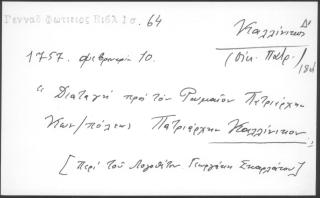 Γενναδ. Φωτιος Βιβλ. 2σ. 64
Καλλίνικος Δ'
(Οἰκ. Πατρ.)
1757. Φεβρουαρίου 10.
"Διαταγὴ πρὸ τὸν Ρωμαῖον Πατριάρχην
Κων/πόλεως Πατριάρχην Καλλίνικον.
[Περὶ τοῦ Λογοθέτου Γεωργάκη Σκαρλάτου]